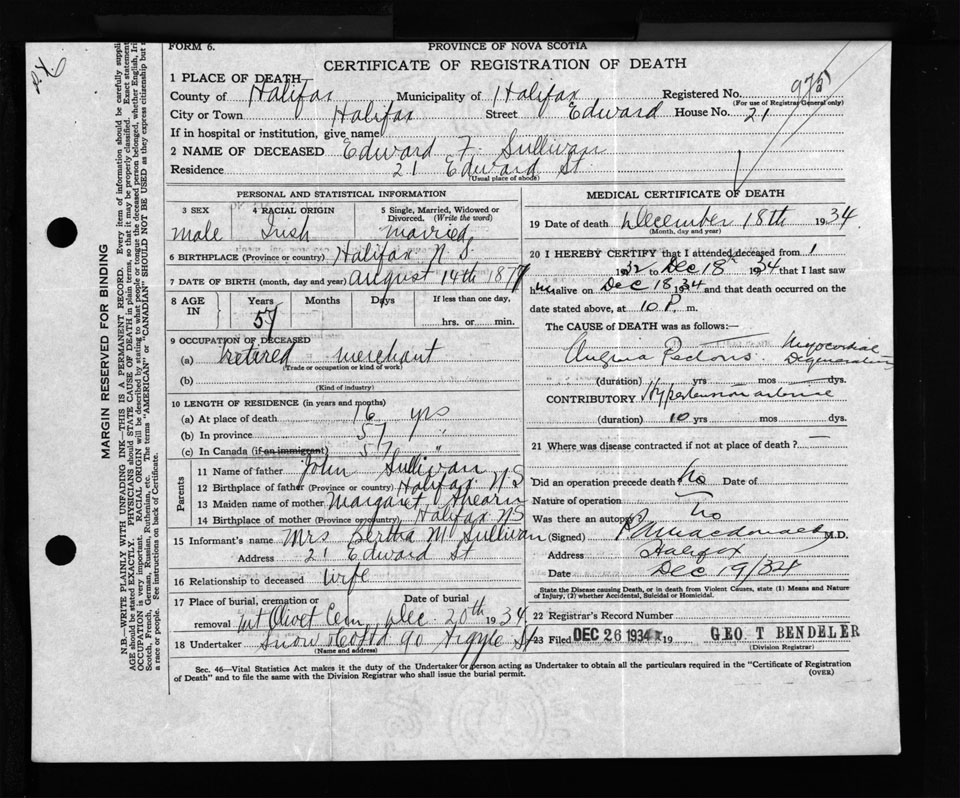 FORM 6.
PROVINCE OF NOVA SCOTIA
CERTIFICATE OF REGISTRATION OF DEATH
1 PLACE OF DEATH
County of Halifax Municipality of Halifax Registered No. 975
(For use of Registrar General only)
City or Town Halifax Street Edward House No. 21
If in hospital or institution, give name
2 NAME OF DECEASED Edward F. Sullivan
Residence 21 Edward St
(Usual place of abode)
MARGIN RESERVED FOR BINDING
N.B.—WRITE PLAINLY WITH UNFADING INK—THIS IS A PERMANENT RECORD. Every item of information should be carefully
AGE should be stated EXACTLY. PHYSICIANS should STATE CAUSE OF DEATH in plain terms, so that it may be properly classified. Exact statement
OCCUPATION is very important. RACIAL ORIGIN will be described by stating to what people or tongue the deceased person belonged, whether English,
Scotch, French, German, Russian, Ruthenian, etc. The terms "AMERICAN" or "CANADIAN" SHOULD NOT BE USED as they express citizenship but
a race or people. See instructions on back of Certificate.
PERSONAL AND STATISTICAL INFORMATION
3 SEX 4 RACIAL ORIGIN 5 Single, Married, Widowed or Divorced, (Write the word)
male Irish married
6 BIRTHPLACE (Province or country) Halifax N S
7 DATE OF BIRTH (month, day and year) august 14th 1877
8 AGE IN Years Months Days If less than one day,
57 hrs. or min.
9 OCCUPATION OF DECEASED
(a) retired merchant
(Trade or occupation or kind of work)
(b)
(Kind of industry)
10 LENGTH OF RESIDENCE (in years and months)
(a) At place of death 16 yrs
(b) In province 57 "
(c) In Canada (if an immigrant) 57 "
Parents
11 Name of father John Sullivan
12 Birthplace of father (Province or country) Halifax N S
13 Maiden name of mother Margaret Ahearn
14 Birthplace of mother (Province or country) Halifax NS
15 Informant's name Mrs Bertha M Sullivan
Address 21 Edward St
16 Relationship to deceased wife
17 Place of burial, cremation or removal Date of burial
Mt Olivet Cem Dec 20th 1934
18 Undertaker Snow & Co Ltd 90 Argyle St
(Name and address)
MEDICAL CERTIFICATE OF DEATH
19 Date of death December 18th 1934
(Month, day and year)
20 I HEREBY CERTIFY that I attended deceased from 1
1932 to Dec 18th 1934 that I last saw
him alive on Dec 18 1934 and that death occurred on the
date stated above, at 10 P. m.
The CAUSE OF DEATH was as follows:—
Angina Pectoris. Myocardial
Degeneration
(duration) yrs mos dys.
CONTRIBUTORY Hypertension
(duration) 10 yrs mos dys.
21 Where was disease contracted if not at place of death? —
Did an operation precede death No Date of
Nature of operation
Was there an autopsy No
(Signed) Macdonald M.D.
Address Halifax
Date Dec 19/34
State the Disease causing Death, or in death from Violent Causes, state (1) Means and Nature of Injury, (2) whether Accidental, Suicidal or Homicidal.
22 Registrar's Record Number
23 Filed DEC 26 1934 19 GEO. T BENDELER
(Division Registrar)
Sec. 46—Vital Statistics Act makes it the duty of the Undertaker or person acting as Undertaker to obtain all the particulars required in the "Certificate of Registration
of Death" and to file the same with the Division Registrar who shall issue the burial permit.
(OVER)